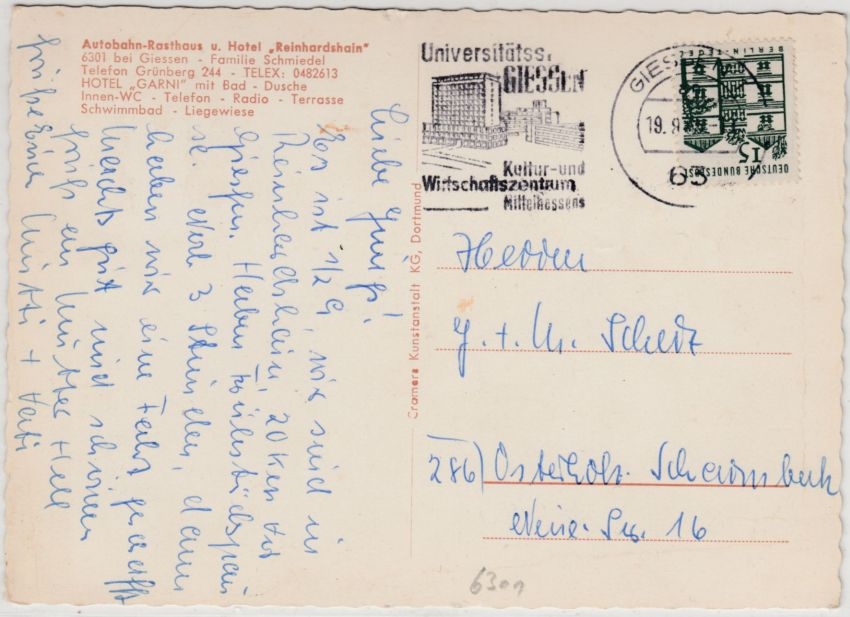 Autobahn-Rasthaus u. Hotel „Reinhardshain"
6301 bei Giessen - Familie Schmiedel
Telefon Grünberg 244 - TELEX: 0482613
HOTEL „GARNI" mit Bad - Dusche
Innen-WC - Telefon - Radio - Terrasse
Schwimmbad - Liegewiese
Universitätsst.
GIESSEN
Kultur-und
Wirtschaftszentrum
Mittelhessens
GIESSEN
19.9
63
DEUTSCHE BUNDESPOST
15
BERLIN-TEGEL
Cramers Kunstanstalt KG, Dortmund
Liebe Jungs!
Es ist 1/2 9, wir sind in
Reinhardshain, 20 km vor
Giessen. Haben Frühstückspau
se. Noch 3 Stunden, dann
haben wir eine Fahrt geschafft
Herzliche
und
+ Vati
Herren
G. + M.
286) Osterholz-Scharmbeck
Str. 16
6301